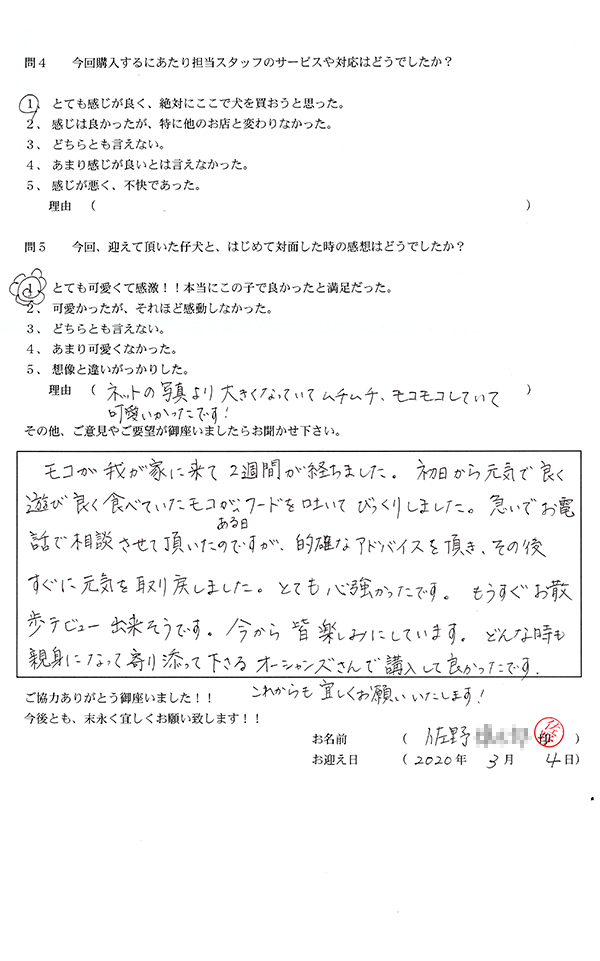 問４　今回購入するにあたり担当スタッフのサービスや対応はどうでしたか？
１、とても感じが良く、絶対にここで犬を買おうと思った。
２、感じは良かったが、特に他のお店と変わりなかった。
３、どちらとも言えない。
４、あまり感じが良いとは言えなかった。
５、感じが悪く、不快であった。
理由　（　　　　）
問５　今回、迎えて頂いた仔犬と、はじめて対面した時の感想はどうでしたか？
１、とても可愛くて感激！！本当にこの子で良かったと満足だった。
２、可愛かったが、それほど感動しなかった。
３、どちらとも言えない。
４、あまり可愛くなかった。
５、想像と違いがっかりした。
理由　（ネットの写真より大きくなっていてムチムチ、モコモコしていて）
可愛いかったです！
その他、ご意見やご要望が御座いましたらお聞かせ下さい。
モコが我が家に来て2週間が経ちました。初日から元気で良く
遊び良く食べていたモコが、ある日フードを吐いてびっくりしました。急いでお電
話で相談させて頂いたのですが、的確なアドバイスを頂き、その後
すぐに元気を取り戻しました。とても心強かったです。もうすぐお散
歩デビュー出来そうです。今から皆楽しみにしています。どんな時も
親身になって寄り添って下さるオーシャンズさんで購入して良かったです。
これからも宜しくお願いいたします！
ご協力ありがとう御座いました！！
今後とも、末永く宜しくお願い致します！！
お名前　（佐野　印）
お迎え日　（2020年　3月　4日）